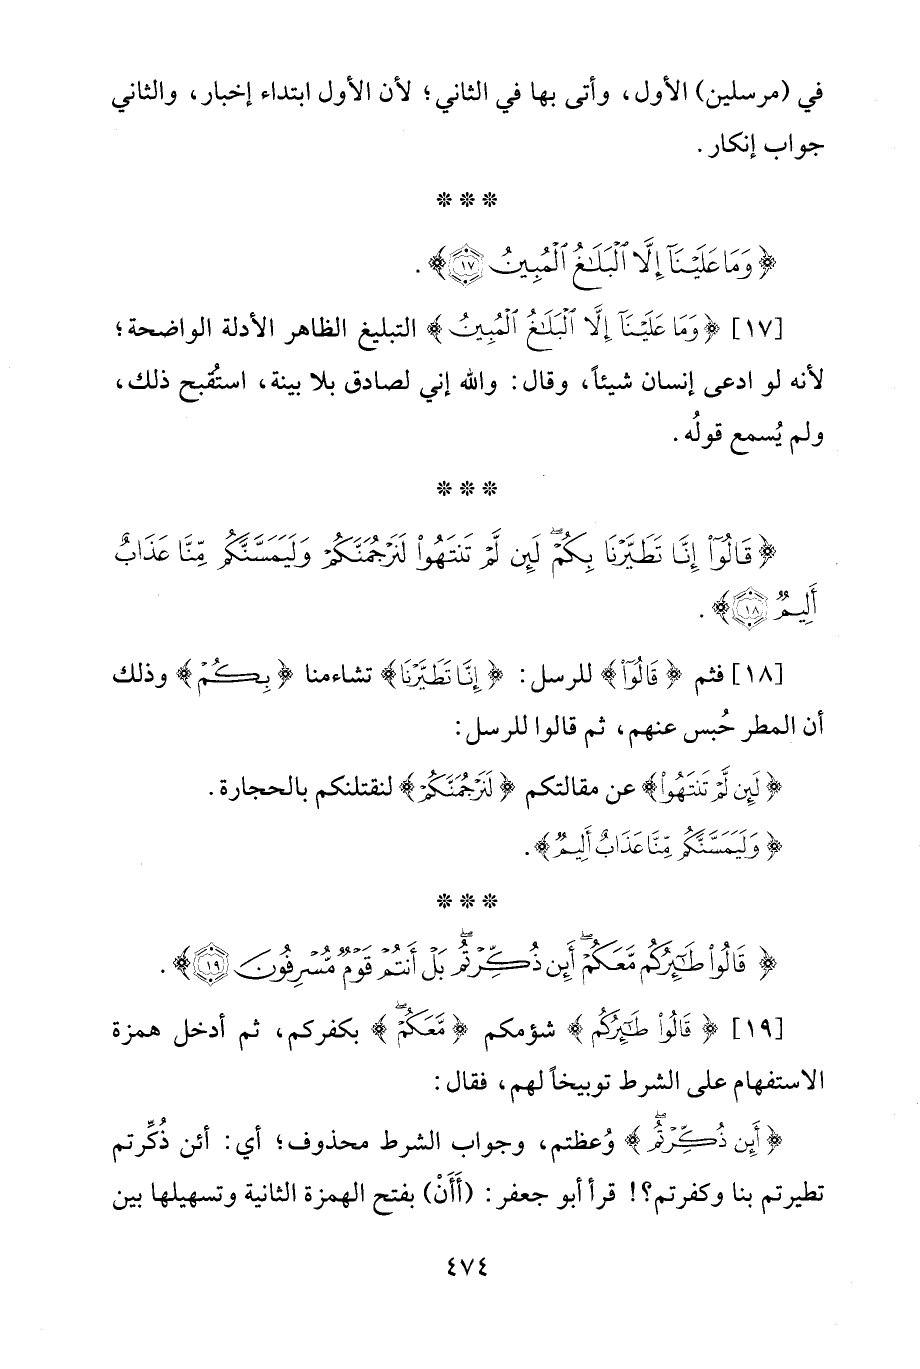 في (مرسلين) الأول، وأتى بها في الثاني؛ لأن الأول ابتداء إخبار، والثاني
جواب إنكار.
* * *
﴿وَمَا عَلَيْنَآ إِلَّا ٱلْبَلَٰغُ ٱلْمُبِينُ ١٧﴾.
[١٧] ﴿وَمَا عَلَيْنَآ إِلَّا ٱلْبَلَٰغُ ٱلْمُبِينُ﴾ التبليغ الظاهر الأدلة الواضحة؛
لأنه لو ادعى إنسان شيئاً، وقال: والله إني لصادق بلا بينة، استُقبح ذلك،
ولم يُسمع قولُه.
* * *
﴿قَالُوٓا۟ إِنَّا تَطَيَّرْنَا بِكُمْ ۖ لَئِن لَّمْ تَنتَهُوا۟ لَنَرْجُمَنَّكُمْ وَلَيَمَسَّنَّكُم مِّنَّا عَذَابٌ
أَلِيمٌ ١٨﴾.
[١٨] فثم ﴿قَالُوٓا۟﴾ للرسل: ﴿إِنَّا تَطَيَّرْنَا﴾ تشاءمنا ﴿بِكُمْ﴾ وذلك
أن المطر حُبس عنهم، ثم قالوا للرسل:
﴿لَئِن لَّمْ تَنتَهُوا۟﴾ عن مقالتكم ﴿لَنَرْجُمَنَّكُمْ﴾ لنقتلنكم بالحجارة.
﴿وَلَيَمَسَّنَّكُم مِّنَّا عَذَابٌ أَلِيمٌ﴾.
* * *
﴿قَالُوا۟ طَٰٓئِرُكُم مَّعَكُمْ ۚ أَئِن ذُكِّرْتُم ۚ بَلْ أَنتُمْ قَوْمٌ مُّسْرِفُونَ ١٩﴾.
[١٩] ﴿قَالُوا۟ طَٰٓئِرُكُم﴾ شؤمكم ﴿مَّعَكُمْ ۖ﴾ بكفركم، ثم أدخل همزة
الاستفهام على الشرط توبيخاً لهم، فقال:
﴿أَئِن ذُكِّرْتُم ۖ﴾ وُعظتم، وجواب الشرط محذوف؛ أي: أئن ذُكِّرتم
تطيرتم بنا وكفرتم؟! قرأ أبو جعفر: (أَأَنْ) بفتح الهمزة الثانية وتسهيلها بين
٤٧٤